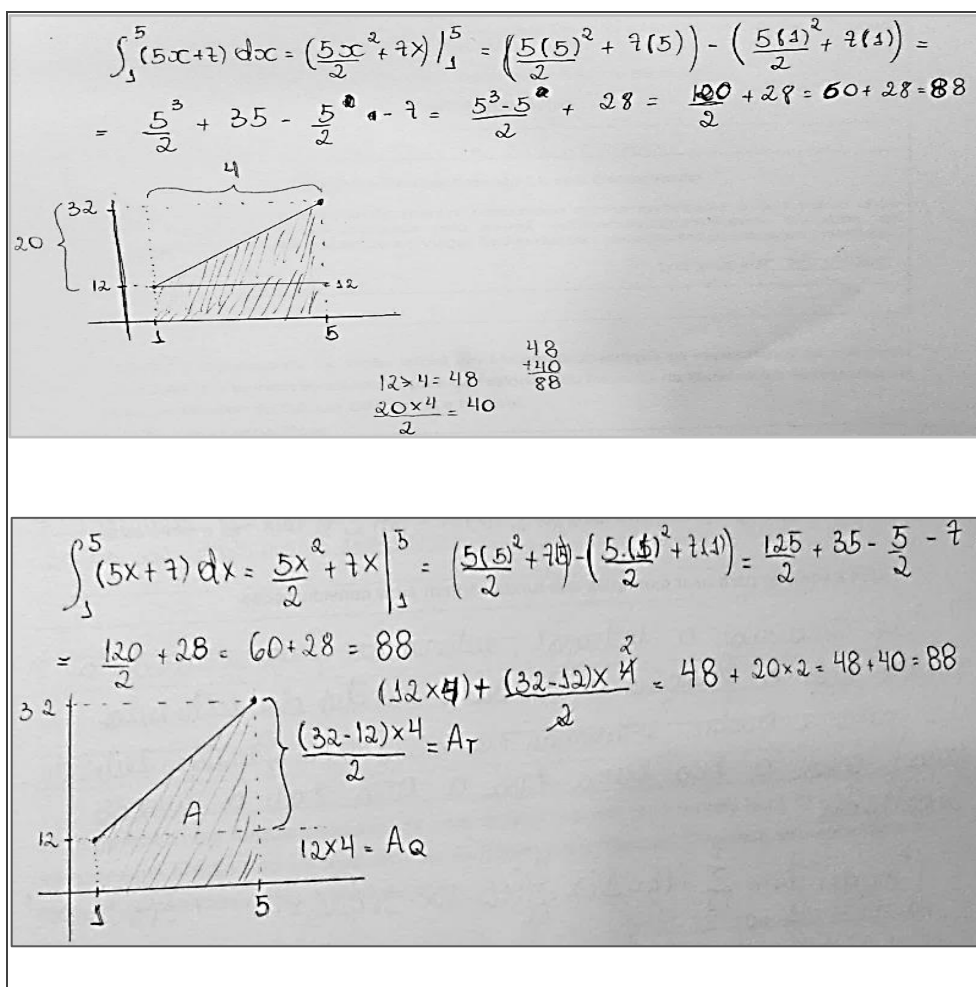 ∫₁⁵ (5x+7) dx = (5x²/2 + 7x) |₁⁵ = (5(5)²/2 + 7(5)) - (5(1)²/2 + 7(1)) =
= 5³/2 + 35 - 5/2 - 7 = (5³-5)/2 + 28 = 120/2 + 28 = 60 + 28 = 88
4
32
20
12
12
1
5
12×4 = 48
(20×4)/2 = 40
48
+40
88
∫₁⁵ (5x+7) dx = 5x²/2 + 7x |₁⁵ = (5(5)²/2 + 7(5)) - (5.(1)²/2 + 7(1)) = 125/2 + 35 - 5/2 - 7
= 120/2 + 28 = 60 + 28 = 88
(12×4) + (32-12)×4/2 = 48 + 20×2 = 48 + 40 = 88
2
32
(32-12)×4/2 = A_T
A
12
12×4 = A_Q
1
5